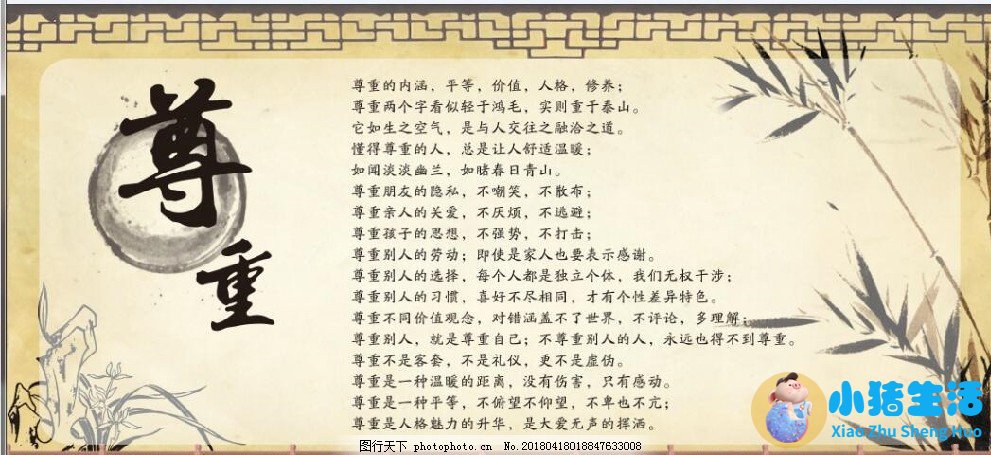 尊
重
尊重的内涵,平等,价值,人格,修养;
尊重两个字看似轻于鸿毛,实则重于泰山。
它如生之空气,是与人交往之融洽之道。
懂得尊重的人,总是让人舒适温暖;
如闻淡淡幽兰,如睹春日青山。
尊重朋友的隐私,不嘲笑,不散布;
尊重亲人的关爱,不厌烦,不逃避;
尊重孩子的思想,不强势,不打击;
尊重别人的劳动;即使是家人也要表示感谢。
尊重别人的选择,每个人都是独立个体,我们无权干涉;
尊重别人的习惯,喜好不尽相同,才有个性差异特色。
尊重不同价值观念,对错涵盖不了世界,不评论,多理解;
尊重别人,就是尊重自己;不尊重别人的人,永远也得不到尊重。
尊重不是客套,不是礼仪,更不是虚伪。
尊重是一种温暖的距离,没有伤害,只有感动。
尊重是一种平等,不俯望不仰望,不卑也不亢;
尊重是人格魅力的升华,是大爱无声的挥洒。
小猪生活
Xiao Zhu Sheng Huo
图行天下 photophoto.cn No.20180418018847633008